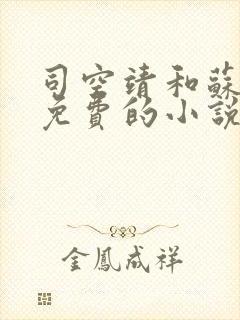 司空靖和蘇
免費的小說
金鳳成祥